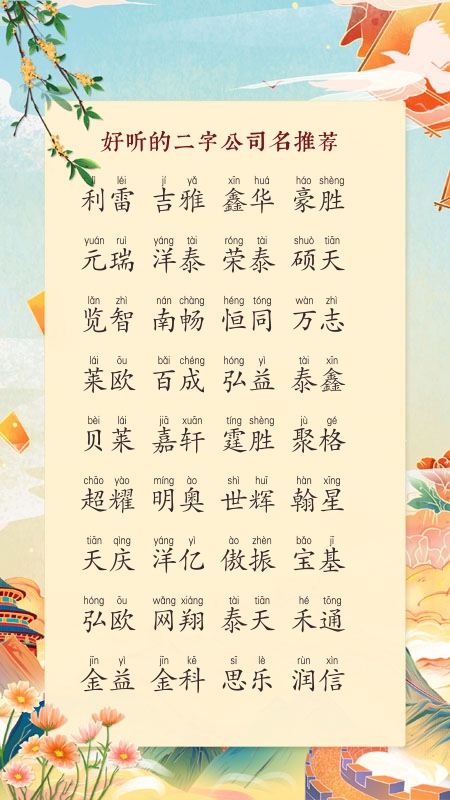 好听的二字公司名推荐
lì léi jí yǎ xīn huá háo shèng
利雷 吉雅 鑫华 豪胜
yuán ruì yáng tài róng tài shuò tiān
元瑞 洋泰 荣泰 硕天
lǎn zhì nán chàng héng tóng wàn zhì
览智 南畅 恒同 万志
lái ōu bǎi chéng hóng yì tài xīn
莱欧 百成 弘益 泰鑫
bèi lái jiā xuān tíng shèng jù gé
贝莱 嘉轩 霆胜 聚格
chāo yào míng ào shì huī hàn xīng
超耀 明奥 世辉 翰星
tiān qìng yáng yì ào zhèn bǎo jī
天庆 洋亿 傲振 宝基
hóng ōu wǎng xiáng tài tiān hé tōng
弘欧 网翔 泰天 禾通
jīn yì jīn kē sī lè rùn xìn
金益 金科 思乐 润信